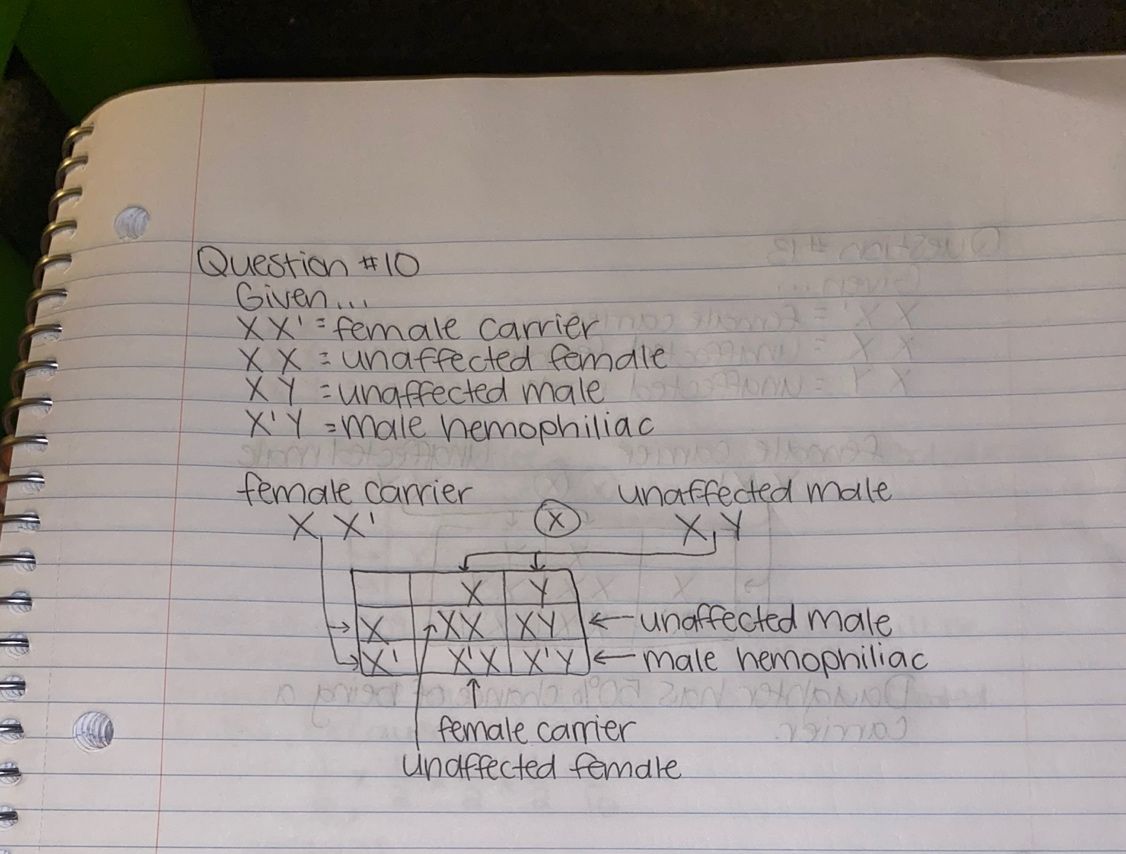 Question #10
Given...
XX' = female carrier
XX = unaffected female
XY = unaffected male
X'Y = male hemophiliac
female carrier unaffected male
X X' X X Y
X Y
X XX XY ← unaffected male
X' X'X X'Y ← male hemophiliac
female carrier
unaffected female